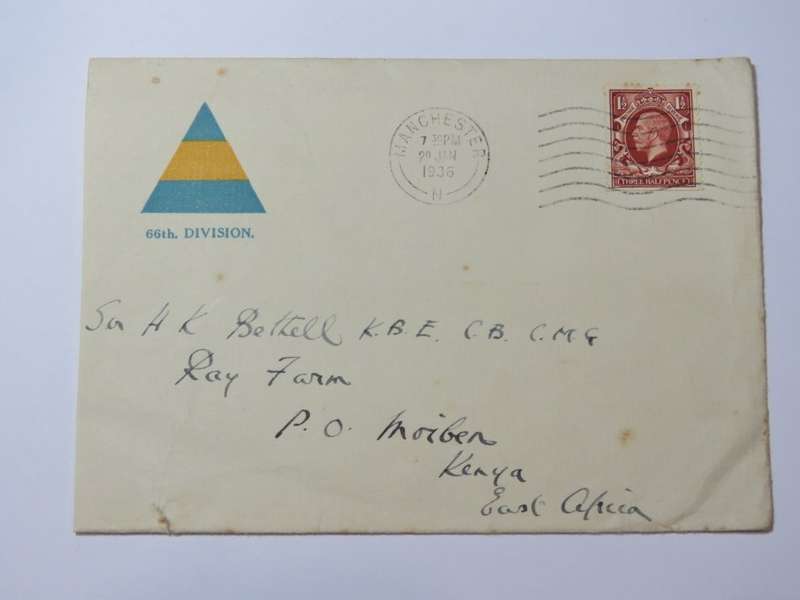 66th. DIVISION.
MANCHESTER
7 30 PM
20 JAN
1936
N
1½ 1½
THREE HALFPENCE
Sir H K Bethell K.B.E. C.B. C.M.G
Ray Farm
P.O. Moiben
Kenya
East Africa